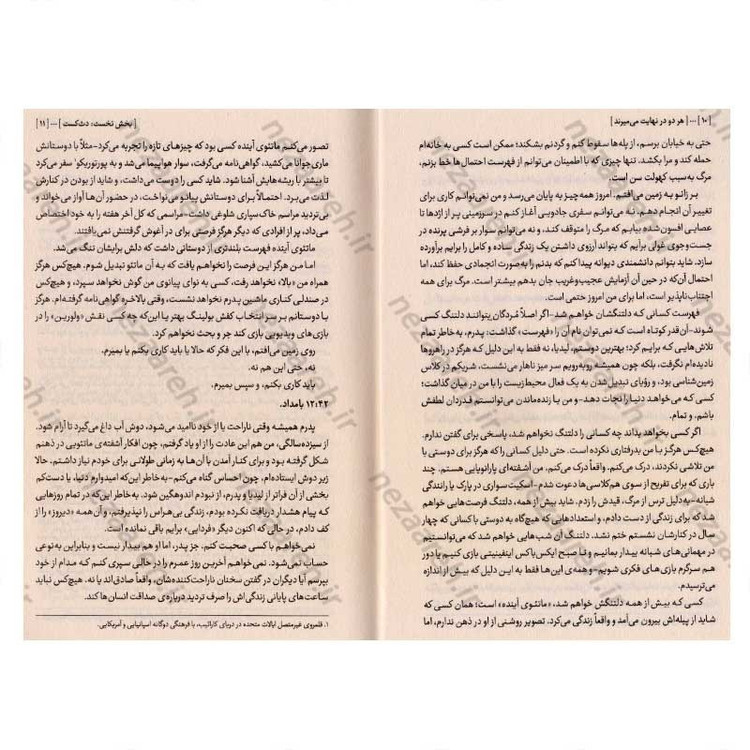 [۱۰] ... [هر دو در نهایت می‌میرند]
حتی به خیابان برسم، از پله‌ها سقوط کنم و گردنم بشکند؛ ممکن است کسی به خانه‌ام
حمله کند و مرا بکشد. تنها چیزی که با اطمینان می‌توانم از فهرست احتمال‌ها خط بزنم،
مرگ به سبب کهولت سن است.
بر زانو به زمین می‌افتم. امروز همه‌چیز به پایان می‌رسد و من نمی‌توانم کاری برای
تغییر آن انجام دهم. نه می‌توانم سفری جادویی آغاز کنم در سرزمینی پر از اژدها تا
عصایی افسون‌شده بیابم که مرگ را متوقف کند، و نه می‌توانم سوار بر فرشی پرنده در
جست‌وجوی غولی برایم که بتواند آرزوی داشتن یک زندگی ساده و کامل را برایم برآورده
سازد. شاید بتوانم دانشمندی دیوانه پیدا کنم که بدنم را به‌صورت انجمادی حفظ کند، اما
احتمال آن‌که در حین آن آزمایش عجیب‌وغریب جان بدهم بیشتر است. مرگ برای همه
اجتناب‌ناپذیر است، اما برای من امروز حتمی است.
فهرست کسانی که دلتنگشان خواهم شد-اگر اصلاً مُردگان بتوانند دلتنگ کسی
شوند-آن‌قدر کوتاه است که نمی‌توان نام آن را «فهرست» گذاشت: پدرم، به خاطر تمام
تلاش‌هایی که برایم کرد؛ بهترین دوستم، لیدیا، نه فقط به این دلیل که هرگز در راهروها
نادیده‌ام نگرفت، بلکه چون همیشه روبه‌رویم سر میز ناهار می‌نشست، شریکم در کلاس
زمین‌شناسی بود، و رؤیای تبدیل‌شدن به یک فعال محیط‌زیست را با من در میان گذاشت؛
کسی که می‌خواهد دنیا را نجات دهد-و من با زنده‌ماندن می‌توانستم قدردان لطفش
باشم. و تمام.
اگر کسی بخواهد بداند چه کسانی را دلتنگ نخواهم شد، پاسخی برای گفتن ندارم.
هیچ‌کس هرگز با من بدرفتاری نکرده است. حتی دلیل کسانی را که هرگز برای دوستی با
من تلاشی نکردند، درک می‌کنم. واقعاً درک می‌کنم. من آشفته‌ای پارانویایی هستم. چند
باری که برای تفریح از سوی هم‌کلاسی‌ها دعوت شدم-اسکیت‌سواری در پارک یا رانندگی
شبانه-به‌دلیل ترس از مرگ، قیدش را زدم. شاید بیش از همه، دلتنگ فرصت‌هایی خواهم
شد که برای زندگی از دست دادم، و استعدادهایی که هیچ‌گاه به دوستی با کسانی که چهار
سال در کنارشان نشستم ختم نشد. دلتنگ آن شب‌هایی خواهم شد که می‌توانستیم
در مهمانی‌های شبانه بیدار بمانیم و تا صبح ایکس‌باکس اینفینیتی بازی کنیم یا دور
هم سرگرم بازی‌های فکری شویم-و همه‌ی این‌ها فقط به این دلیل که بیش از اندازه
می‌ترسیدم.
کسی که بیش از همه دلتنگش خواهم شد، «ماتئوی آینده» است؛ همان کسی که
شاید از پیله‌اش بیرون می‌آمد و واقعاً زندگی می‌کرد. تصویر روشنی از او در ذهن ندارم، اما
[بخش نخست: دث‌کست] ... [۱۱]
تصور می‌کنم ماتئوی آینده کسی بود که چیزهای تازه را تجربه می‌کرد-مثلاً با دوستانش
ماری‌جوانا می‌کشید، گواهی‌نامه می‌گرفت، سوار هواپیما می‌شد و به پورتوریکو۱ سفر می‌کرد
تا بیشتر با ریشه‌هایش آشنا شود. شاید کسی را دوست می‌داشت، و شاید از بودن در کنارش
لذت می‌برد. احتمالاً برای دوستانش پیانو می‌نواخت، در حضور آن‌ها آواز می‌خواند و
بی‌تردید مراسم خاک‌سپاری شلوغی داشت-مراسمی که کل آخر هفته را به خود اختصاص
می‌داد، پر از افرادی که دیگر هرگز فرصتی برای در آغوش گرفتنش نمی‌یافتند.
ماتئوی آینده فهرست بلندتری از دوستانی داشت که دلش برایشان تنگ می‌شد.
اما من هرگز این فرصت را نخواهم یافت که به آن ماتئو تبدیل شوم. هیچ‌کس هرگز
همراه من «بالا» نخواهد رفت، کسی به نوای پیانوی من گوش نخواهد سپرد، و هیچ‌کس
در صندلی کناری ماشین پدرم نخواهد نشست، وقتی بالاخره گواهی‌نامه گرفته‌ام. هرگز
با دوستانم بر سر انتخاب کفش بولینگ بهتر یا این‌که چه کسی نقش «ولورین» را در
بازی‌های ویدیویی بازی کند جر و بحث نخواهم کرد.
روی زمین می‌افتم، با این فکر که حالا یا باید کاری بکنم یا بمیرم.
نه، حتی این هم نه.
باید کاری بکنم، و سپس بمیرم.
۱۲:۴۲ بامداد.
پدرم همیشه وقتی ناراحت یا از خود ناامید می‌شود، دوش آب داغ می‌گیرد تا آرام شود.
از سیزده‌سالگی، من هم این عادت را از او یاد گرفتم، چون افکار آشفته‌ی ماتئویی در ذهنم
شکل گرفته بود و برای کنار آمدن با آن‌ها به زمانی طولانی برای خودم نیاز داشتم. حالا
زیر دوش ایستاده‌ام، چون احساس گناه می‌کنم-به خاطر این‌که امیدوارم دنیا، یا دست‌کم
بخشی از آن فراتر از لیدیا و پدرم، از نبودم اندوهگین شود. به خاطر این‌که در تمام روزهایی
که پیام هشدار دریافت نکرده بودم، زندگی بی‌هراس را نپذیرفتم، و آن‌همه «دیروز» را از
کف دادم، در حالی که اکنون دیگر «فردایی» برایم باقی نمانده است.
نمی‌خواهم با کسی صحبت کنم، جز پدر، اما او هم بیدار نیست و بنابراین به‌نوعی
حساب نمی‌شود. نمی‌خواهم آخرین روز عمرم را در حالی سپری کنم که مدام از خود
بپرسم آیا دیگران در گفتن سخنان ناراحت‌کننده‌شان، واقعاً صادق‌اند یا نه. هیچ‌کس نباید
ساعت‌های پایانی زندگی‌اش را صرف تردید درباره‌ی صداقت انسان‌ها کند.
۱. قلمروی غیرمتصل ایالات متحده در دریای کارائیب، با فرهنگی دوگانه اسپانیایی و آمریکایی.
nezareh.ir